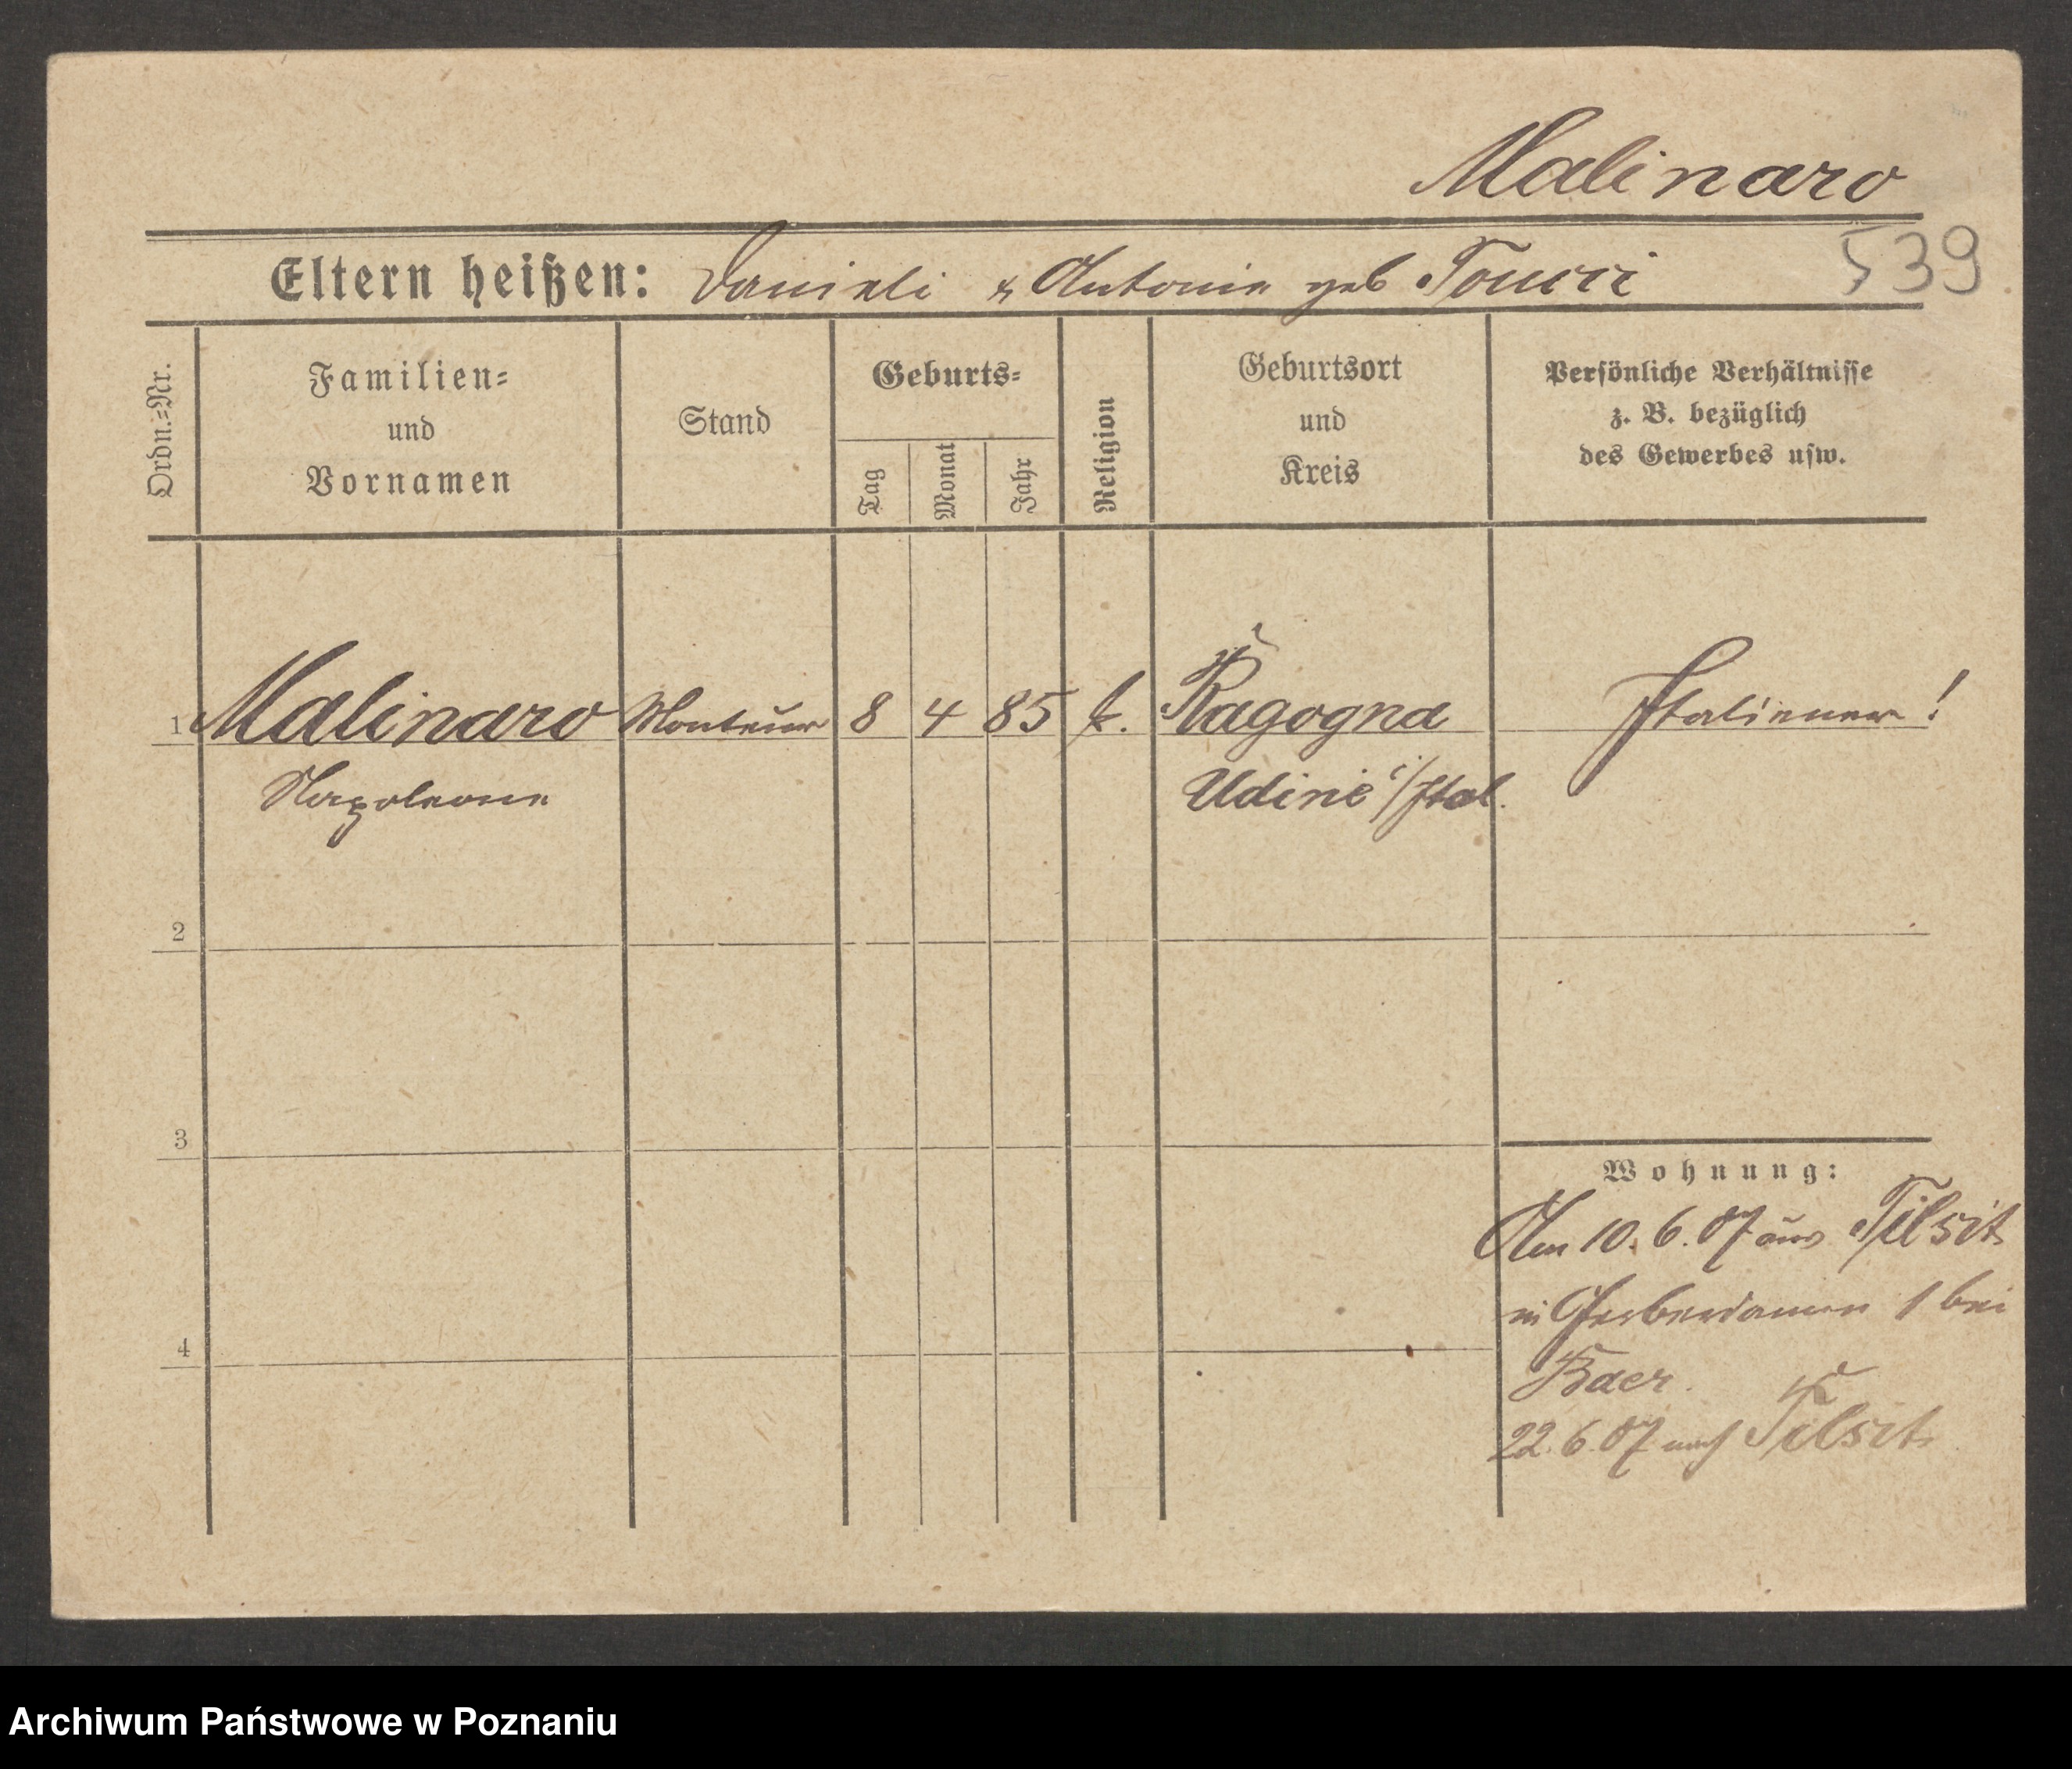 Malinaro
539
Eltern heißen: Danieli & Antonie geb
Ordn.=Nr.
Familien=
und
Vornamen
Stand
Geburts=
Tag
Monat
Jahr
Religion
Geburtsort
und
Kreis
Persönliche Verhältnisse
z. B. bezüglich
des Gewerbes usw.
1 Malinaro Monteur 8 4 85 k. Ragogna Italiener!
Napoleone Udine i/Ital.
2
3
Wohnung:
Am 10. 6. 07 aus Tilsit
in Gerberdamm 1 bei
4
Baer.
22. 6. 07 nach Tilsit
Archiwum Państwowe w Poznaniu